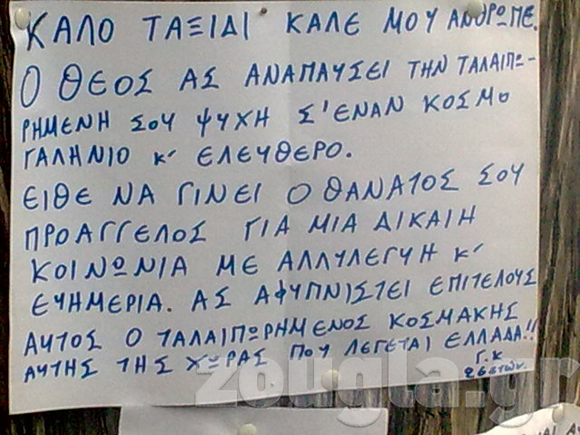 ΚΑΛΟ ΤΑΞΙΔΙ ΚΑΛΕ ΜΟΥ ΑΝΘΡΩΠΕ.
Ο ΘΕΟΣ ΑΣ ΑΝΑΠΑΥΣΕΙ ΤΗΝ ΤΑΛΑΙΠΩ-
ΡΗΜΕΝΗ ΣΟΥ ΨΥΧΗ Σ'ΕΝΑΝ ΚΟΣΜΟ
ΓΑΛΗΝΙΟ Κ' ΕΛΕΥΘΕΡΟ.
ΕΙΘΕ ΝΑ ΓΙΝΕΙ Ο ΘΑΝΑΤΟΣ ΣΟΥ
ΠΡΟΑΓΓΕΛΟΣ ΓΙΑ ΜΙΑ ΔΙΚΑΙΗ
ΚΟΙΝΩΝΙΑ ΜΕ ΑΛΛΥΛΕΓΥΗ Κ'
ΕΥΗΜΕΡΙΑ. ΑΣ ΑΦΥΠΝΙΣΤΕΙ ΕΠΙΤΕΛΟΥΣ
ΑΥΤΟΣ Ο ΤΑΛΑΙΠΩΡΗΜΕΝΟΣ ΚΟΣΜΑΚΗΣ
ΑΥΤΗΣ ΤΗΣ ΧΩΡΑΣ ΠΟΥ ΛΕΓΕΤΑΙ ΕΛΛΑΔΑ!!
Γ.Κ
26ετών.
zougla.gr